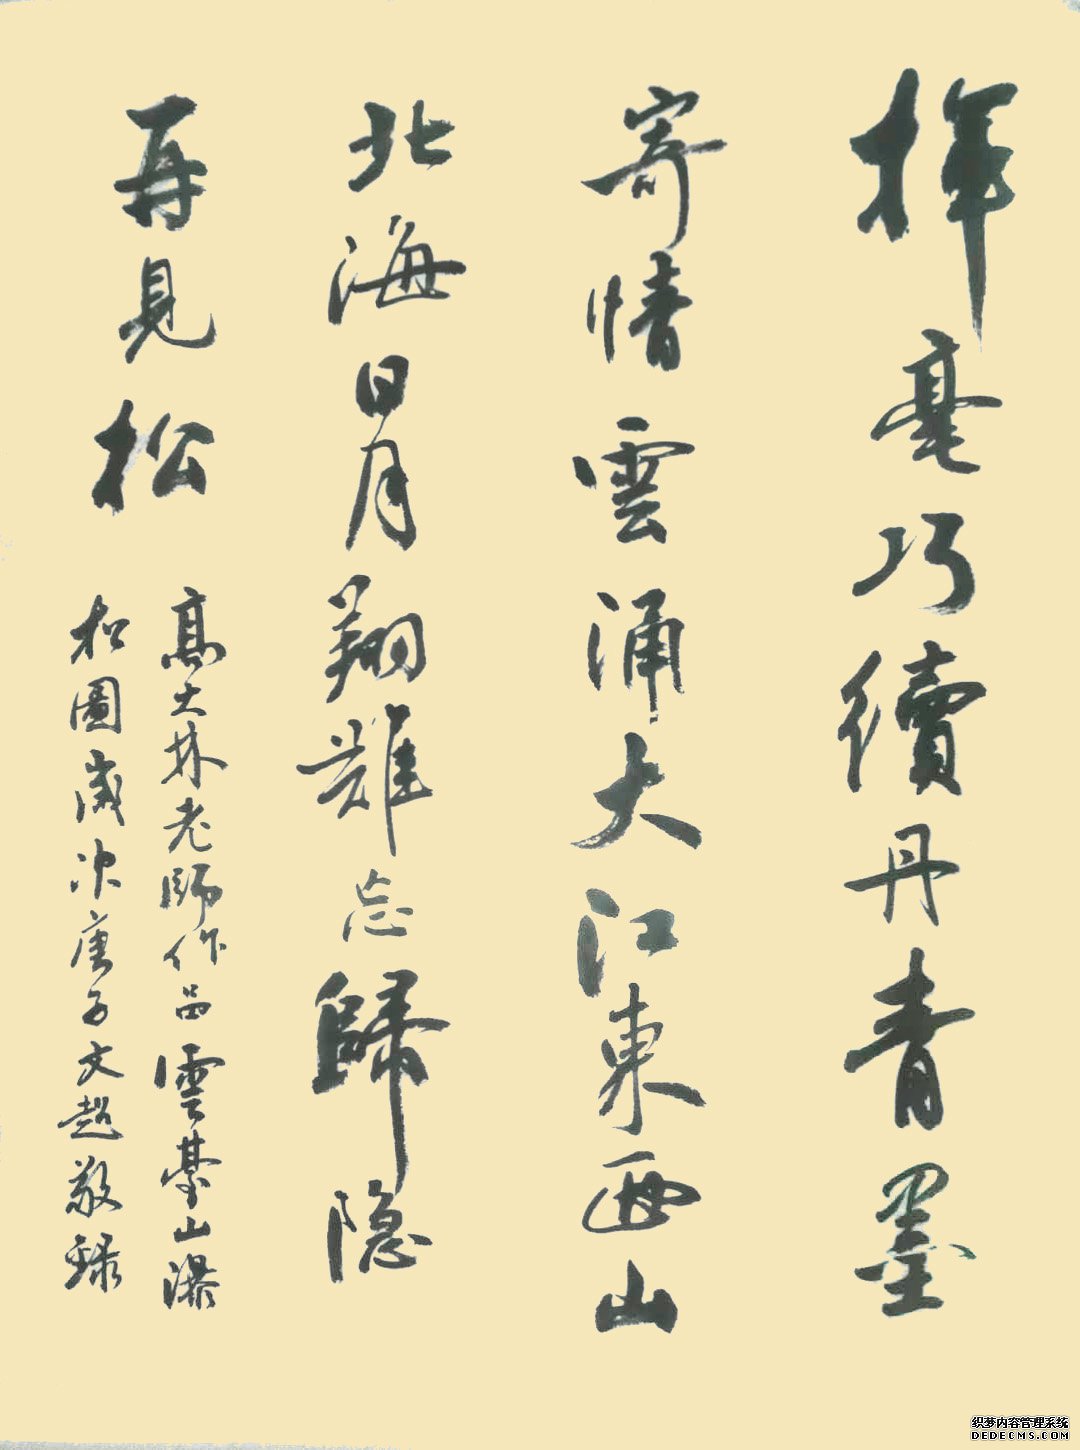 揮毫巧續丹青墨
寄情雲涌大江東西山
北海日月翔難忘歸隐
再見松
高大林老師作品雲臺山瀑
松圖歲次庚子文趙敬録
织梦内容管理系统
DEDECMS.COM